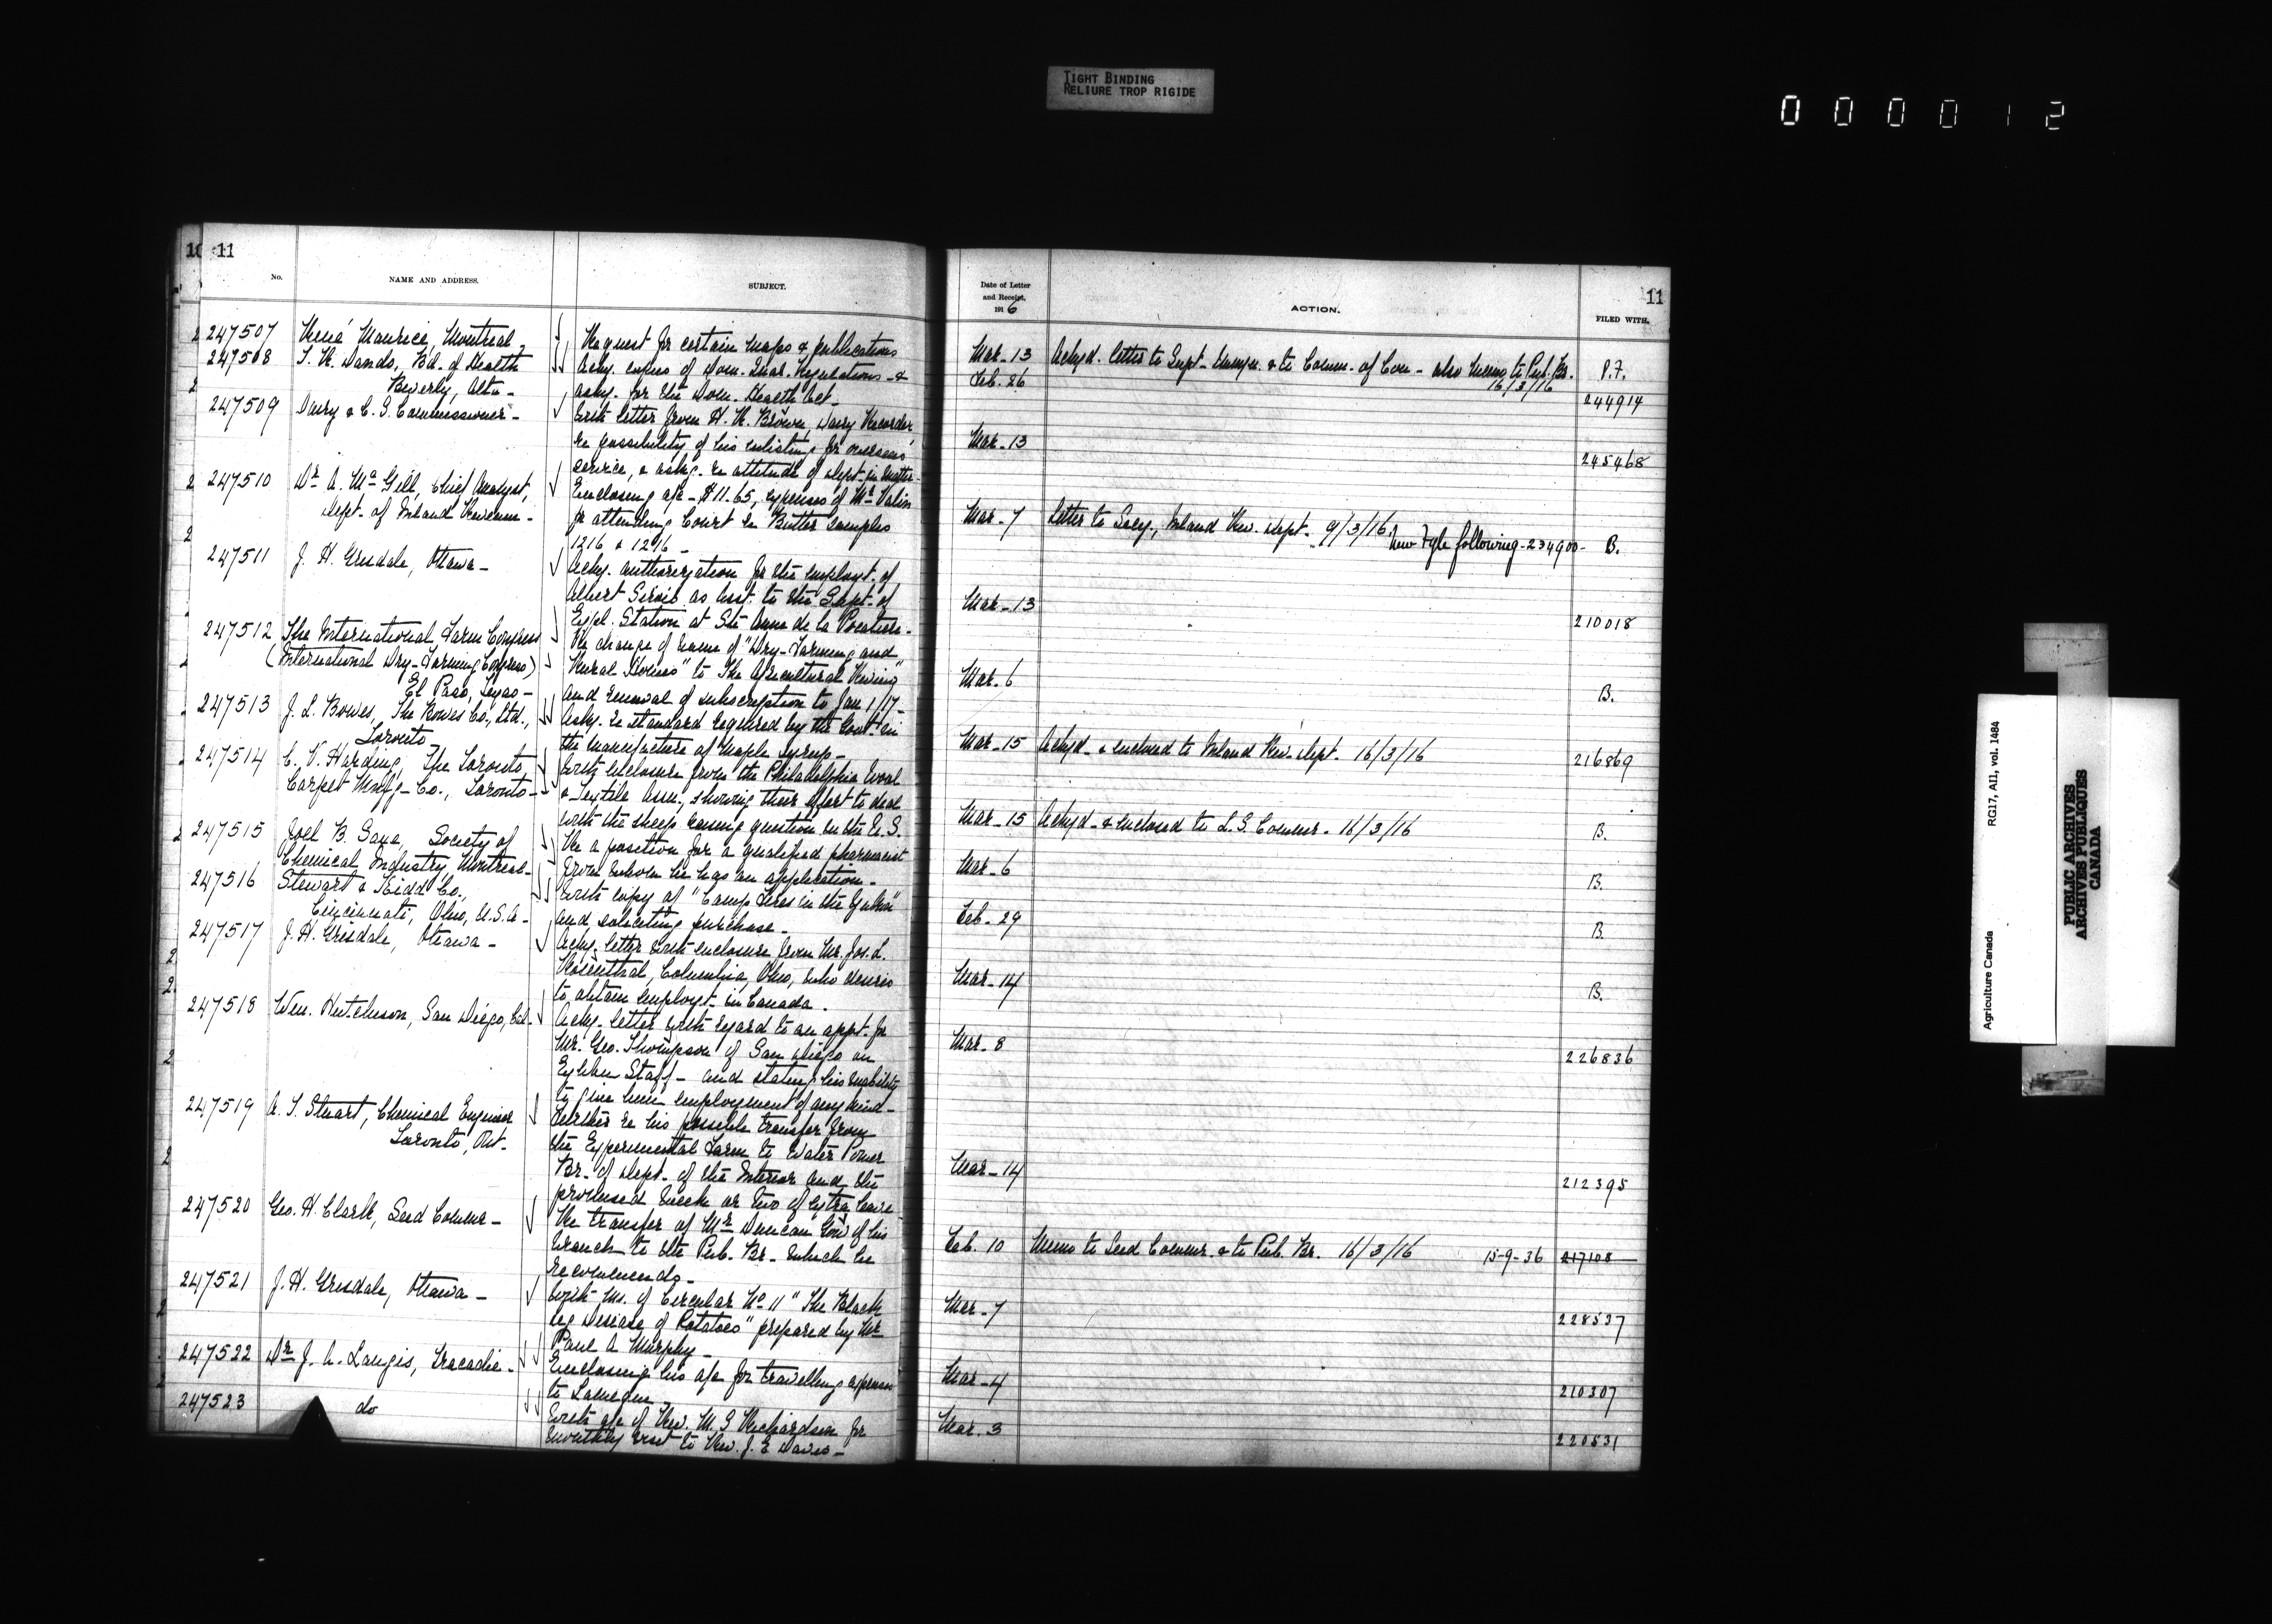 TIGHT BINDING
RELIURE TROP RIGIDE
000012
10 11
No.
NAME AND ADDRESS.
SUBJECT.
247507 René Maurice, Montreal,
Request for certain maps & publications
247508 T. R. Dando, Bd. of Health
Beverly, Alta -
Ackg. copies of Dom. Regulations - &
askg. for the Dom. Health Act -
247509 Dairy & C. S. Commissioner -
With letter from H. R. Brown, Dairy Recorder
re possibility of his enlisting for overseas
service, & askg. re attitude of Dept. in matter
247510 Dr. A. McGill, Chief Analyst,
Dept. of Inland Revenue -
Enclosing a/c - $11.65, expenses of Mr Valin
for attending Court re Butter samples
1216 & 1296 -
247511 J. H. Grisdale, Ottawa -
Askg. authorization for the employt. of
Albert Sirois as Asst. to the Supt. of
Exptl. Station at Ste Anne de la Pocatiere -
247512 The International Farm Congress
(International Dry-Farming Congress)
El Paso, Texas -
Re change of name of "Dry-Farming and
Rural Homes" to The Agricultural Review"
and renewal of subscription to Jan 1/17 -
247513 J. L. Bowes, The Bowes Co., Ltd.,
Toronto
Askg. re standard required by the Govt. in
the manufacture of maple syrup -
247514 C. V. Harding, The Toronto
Carpet Mnfg. Co., Toronto -
With enclosure from the Philadelphia Wool
& Textile Assn., showing their effort to deal
with the sheep raising question in the U.S.
247515 Joel B. Saxe, Society of
Chemical Industry, Montreal -
Re a position for a qualified pharmacist
from whom he has an application -
247516 Stewart & Kidd Co.,
Cincinnati, Ohio, U.S.A -
With copy of "Camp Fires in the Yukon"
and soliciting purchase -
247517 J. H. Grisdale, Ottawa -
Ackg. letter with enclosure from Mr. Jos. L.
Rosenthal, Columbia, Ohio, who desires
to obtain employt. in Canada.
247518 Wm. Hutchison, San Diego, Cal -
Ackg. letter with regard to an appt. for
Mr. Geo. Thompson of San Diego on
Exhbn Staff - and stating his inability
to give him employment of any kind -
247519 A. T. Stuart, Chemical Engineer
Toronto, Ont.
Further re his possible transfer from
the Experimental Farm to Water Power
Br. of Dept. of the Interior and the
promised week or two of extra leave -
247520 Geo. H. Clark, Seed Commr -
Re transfer of Mr Duncan Gow of his
branch to the Pub. Br - which he
recommends -
247521 J. H. Grisdale, Ottawa -
With Ms. of Circular No 11 "The Black
leg Disease of Potatoes" prepared by Mr
Paul A Murphy -
247522 Dr J. A. Langis, Tracadie -
Enclosing his a/c for travelling expenses
to Lameque -
247523 do
With a/c of Rev. M. S Richardson for
monthly visit to Rev. J. E Davis -
Date of Letter
and Receipt,
1916
ACTION.
11
FILED WITH.
Mar - 13 Ackgd. letter to Supt - Immgn. & to Commr. of Com - also Memo to Pub. Br. 16/3/16 P.F.
Feb. 26 244914
Mar - 13 245468
Mar - 7 Letter to Secy., Inland Rev. Dept. 9/3/16. New Fyle following - 234900 - B.
Mar - 13 210018
Mar. 6 B.
Mar - 15 Ackgd - & enclosed to Inland Rev. Dept. 16/3/16 216869
Mar - 15 Ackgd - & enclosed to L. S. Commr. 16/3/16 B.
Mar - 6 B.
Feb - 29 B.
Mar - 14 B.
Mar - 8 226836
Mar - 14 212395
Feb. 10 Memo to Seed Commr. & to Pub. Br. 16/3/16 15-9-36 217108
Mar - 7 228537
Mar - 4 210307
Mar. 3 220531
Agriculture Canada
RG17, AII, vol. 1484
PUBLIC ARCHIVES
ARCHIVES PUBLIQUES
CANADA